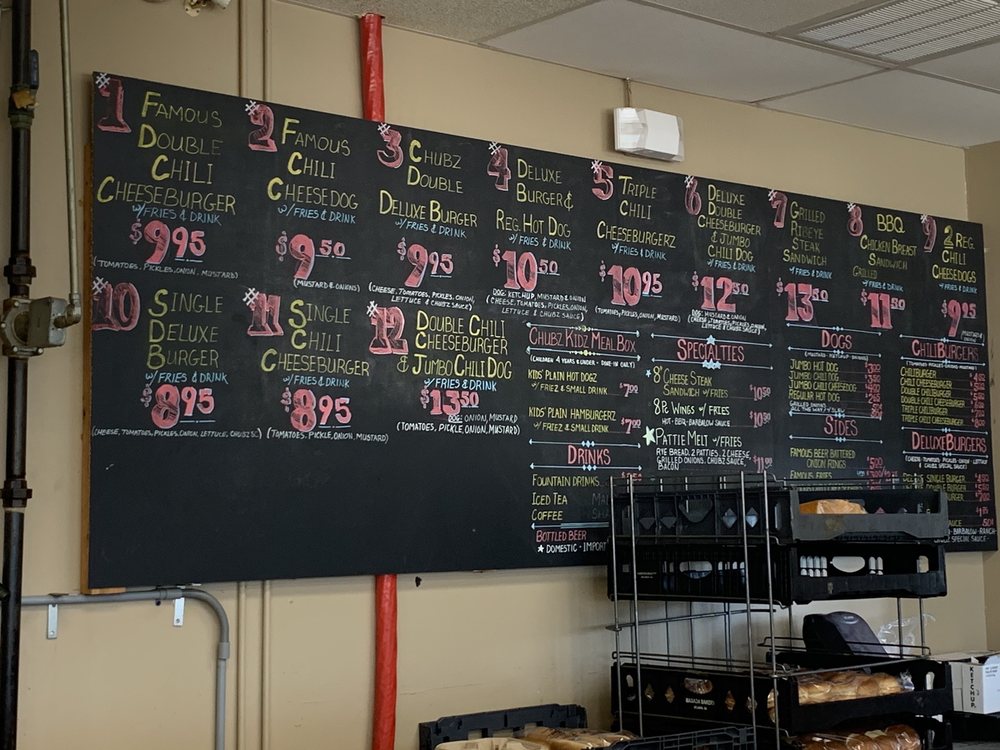 #1
FAMOUS
DOUBLE
CHILI
CHEESEBURGER
W/FRIES & DRINK
$9 95
(TOMATOES, PICKLES, ONION, MUSTARD)
#2
FAMOUS
CHILI
CHEESEDOG
W/FRIES & DRINK
$9 50
(MUSTARD & ONIONS)
#3
CHUBZ
DOUBLE
DELUXE BURGER
W/FRIES & DRINK
$9 95
(CHEESE, TOMATOES, PICKLES, ONION,
LETTUCE & CHUBZ SAUCE)
#4
DELUXE
BURGER &
REG. HOT DOG
W/FRIES & DRINK
$10 50
DOG: KETCHUP, MUSTARD & ONION
(CHEESE, TOMATOES, PICKLES, ONION,
LETTUCE & CHUBZ SAUCE)
#5
TRIPLE
CHILI
CHEESEBURGERZ
W/FRIES & DRINK
$10 95
(TOMATOES, PICKLES, ONION, MUSTARD)
#6
DELUXE
DOUBLE
CHEESEBURGER
& JUMBO
CHILI DOG
W/FRIES & DRINK
$12 50
DOG: MUSTARD & ONION
(CHEESE, TOMATOES, PICKLES, ONION,
LETTUCE & CHUBZ SAUCE)
#7
GRILLED
RIBEYE
STEAK
SANDWICH
W/FRIES & DRINK
$13 50
#8
BBQ
CHICKEN BREAST
SANDWICH
GRILLED
W/FRIES & DRINK
$11 50
#9
2 REG.
CHILI
CHEESEDOGS
W/FRIES & DRINK
$9 95
#10
SINGLE
DELUXE
BURGER
W/FRIES & DRINK
$8 95
(CHEESE, TOMATOES, PICKLES, ONION, LETTUCE, CHUBZ SC)
#11
SINGLE
CHILI
CHEESEBURGER
W/FRIES & DRINK
$8 95
(TOMATOES, PICKLE, ONION, MUSTARD)
#12
DOUBLE CHILI
CHEESEBURGER
& JUMBO CHILI DOG
W/FRIES & DRINK
$13 50
DOG: ONION, MUSTARD
(TOMATOES, PICKLE, ONION, MUSTARD)
CHUBZ KIDZ MEAL BOX
(CHILDREN 4 YEARS & UNDER - DINE-IN ONLY)
KIDS' PLAIN HOT DOGZ
W/FRIEZ & SMALL DRINK $7 00
KIDS' PLAIN HAMBURGERZ
W/FRIEZ & SMALL DRINK $7 00
DRINKS
FOUNTAIN DRINKS
ICED TEA
COFFEE
BOTTLED BEER
DOMESTIC - IMPORT
SPECIALTIES
8" CHEESE STEAK
SANDWICH W/FRIES $10 50
8 PC WINGS W/FRIES $10 50
HOT-BBQ-BARBALOW SAUCE
PATTIE MELT W/FRIES
RYE BREAD, 2 PATTIES, 2 CHEESE,
GRILLED ONIONS, CHUBZ SAUCE,
BACON
DOGS
(MUSTARD - KETCHUP - ONIONS)
JUMBO HOT DOG
JUMBO CHILI DOG
JUMBO CHILI CHEESE DOG
REGULAR HOT DOG
SIDES
FAMOUS BEER BATTERED
ONION RINGS
FAMOUS FRIES
CHILIBURGERS
CHILIBURGER
CHILI CHEESEBURGER
DOUBLE CHILIBURGER
DOUBLE CHILI CHEESEBURGER
TRIPLE CHILIBURGER
TRIPLE CHILI CHEESEBURGER
DELUXE BURGERS
(CHEESE - TOMATOES - PICKLE - ONION - LETTUCE
& CHUBZ SPECIAL SAUCE)
KETCHUP